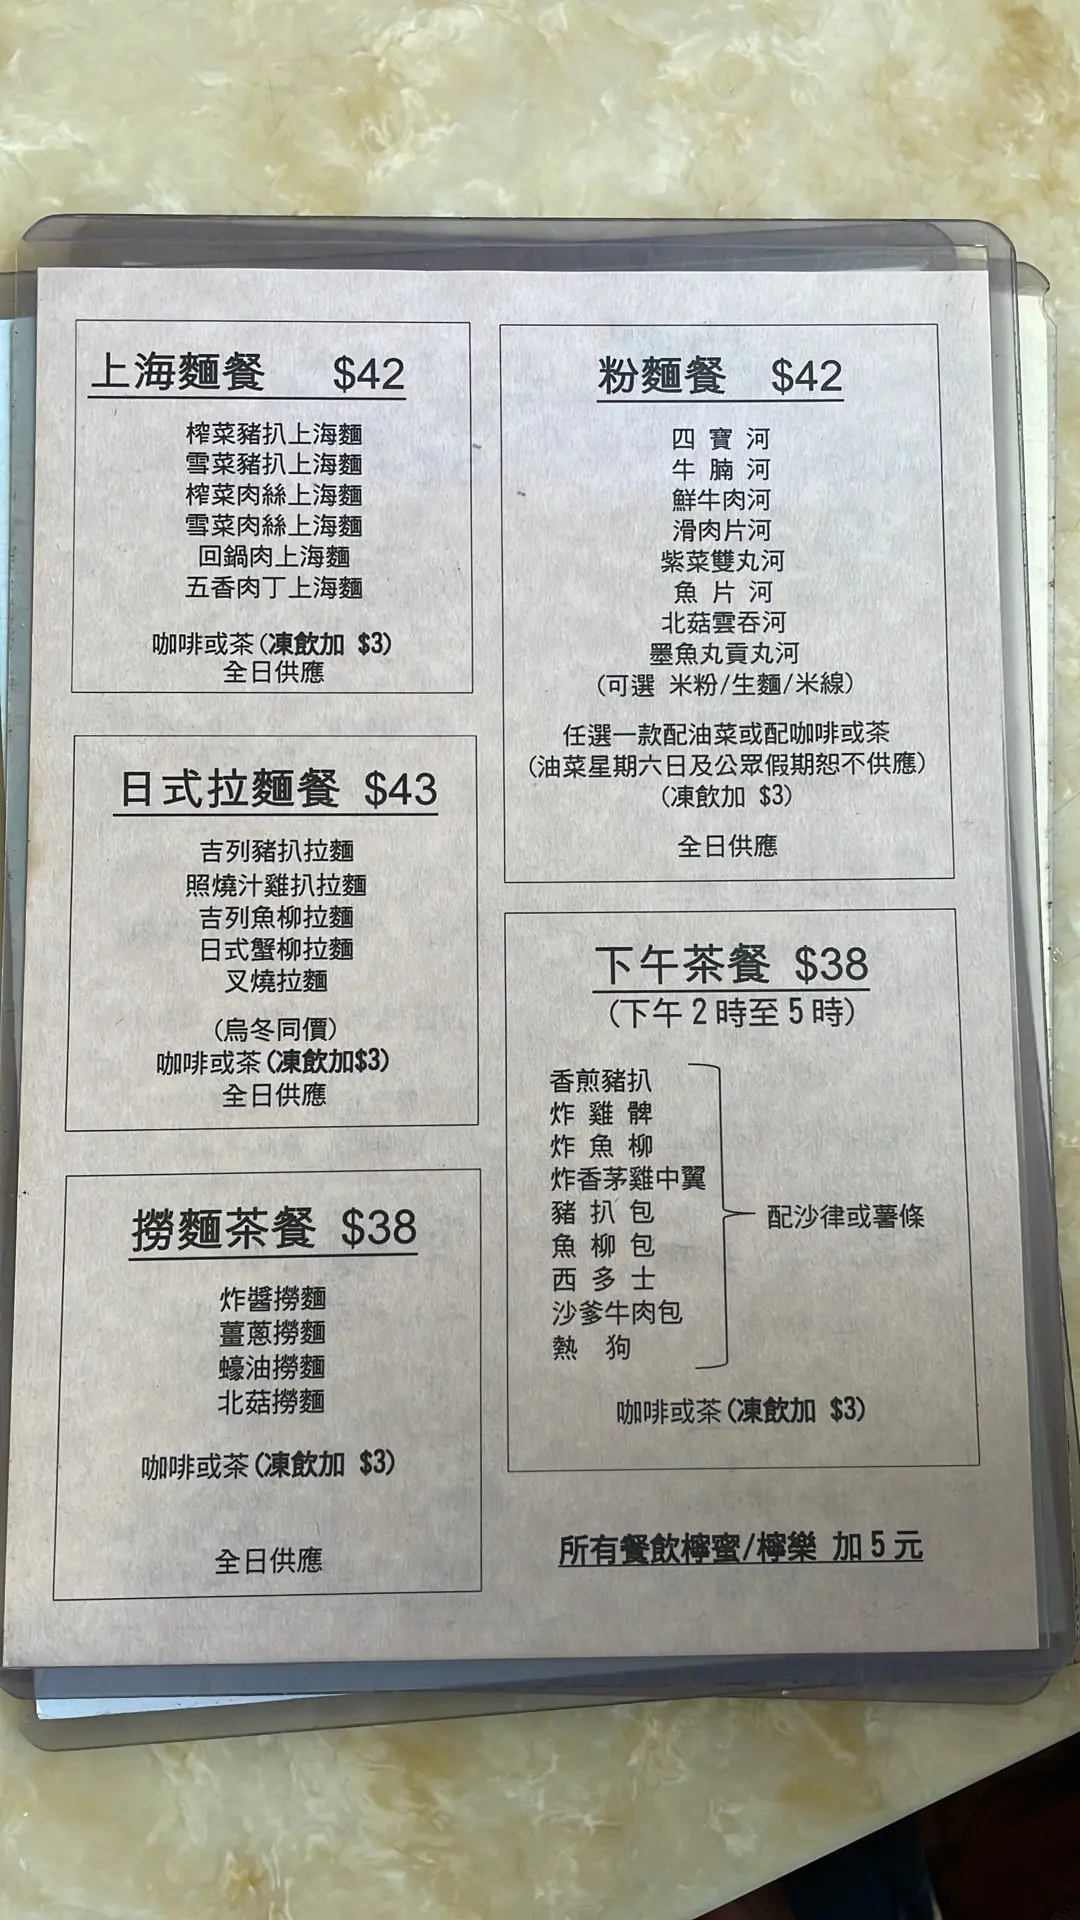 上海麵餐 $42
榨菜豬扒上海麵
雪菜豬扒上海麵
榨菜肉絲上海麵
雪菜肉絲上海麵
回鍋肉上海麵
五香肉丁上海麵
咖啡或茶(凍飲加 $3)
全日供應
日式拉麵餐 $43
吉列豬扒拉麵
照燒汁雞扒拉麵
吉列魚柳拉麵
日式蟹柳拉麵
叉燒拉麵
(烏冬同價)
咖啡或茶(凍飲加$3)
全日供應
撈麵茶餐 $38
炸醬撈麵
薑蔥撈麵
蠔油撈麵
北菇撈麵
咖啡或茶(凍飲加 $3)
全日供應
粉麵餐 $42
四 寶 河
牛 腩 河
鮮牛肉河
滑肉片河
紫菜雙丸河
魚 片 河
北菇雲吞河
墨魚丸貢丸河
(可選 米粉/生麵/米線)
任選一款配油菜或配咖啡或茶
(油菜星期六日及公眾假期恕不供應)
(凍飲加 $3)
全日供應
下午茶餐 $38
(下午 2 時至 5 時)
香煎豬扒
炸 雞 髀
炸 魚 柳
炸香茅雞中翼
豬 扒 包
魚 柳 包
西 多 士
沙爹牛肉包
熱 狗
配沙律或薯條
咖啡或茶(凍飲加 $3)
所有餐飲檸蜜/檸樂 加 5 元